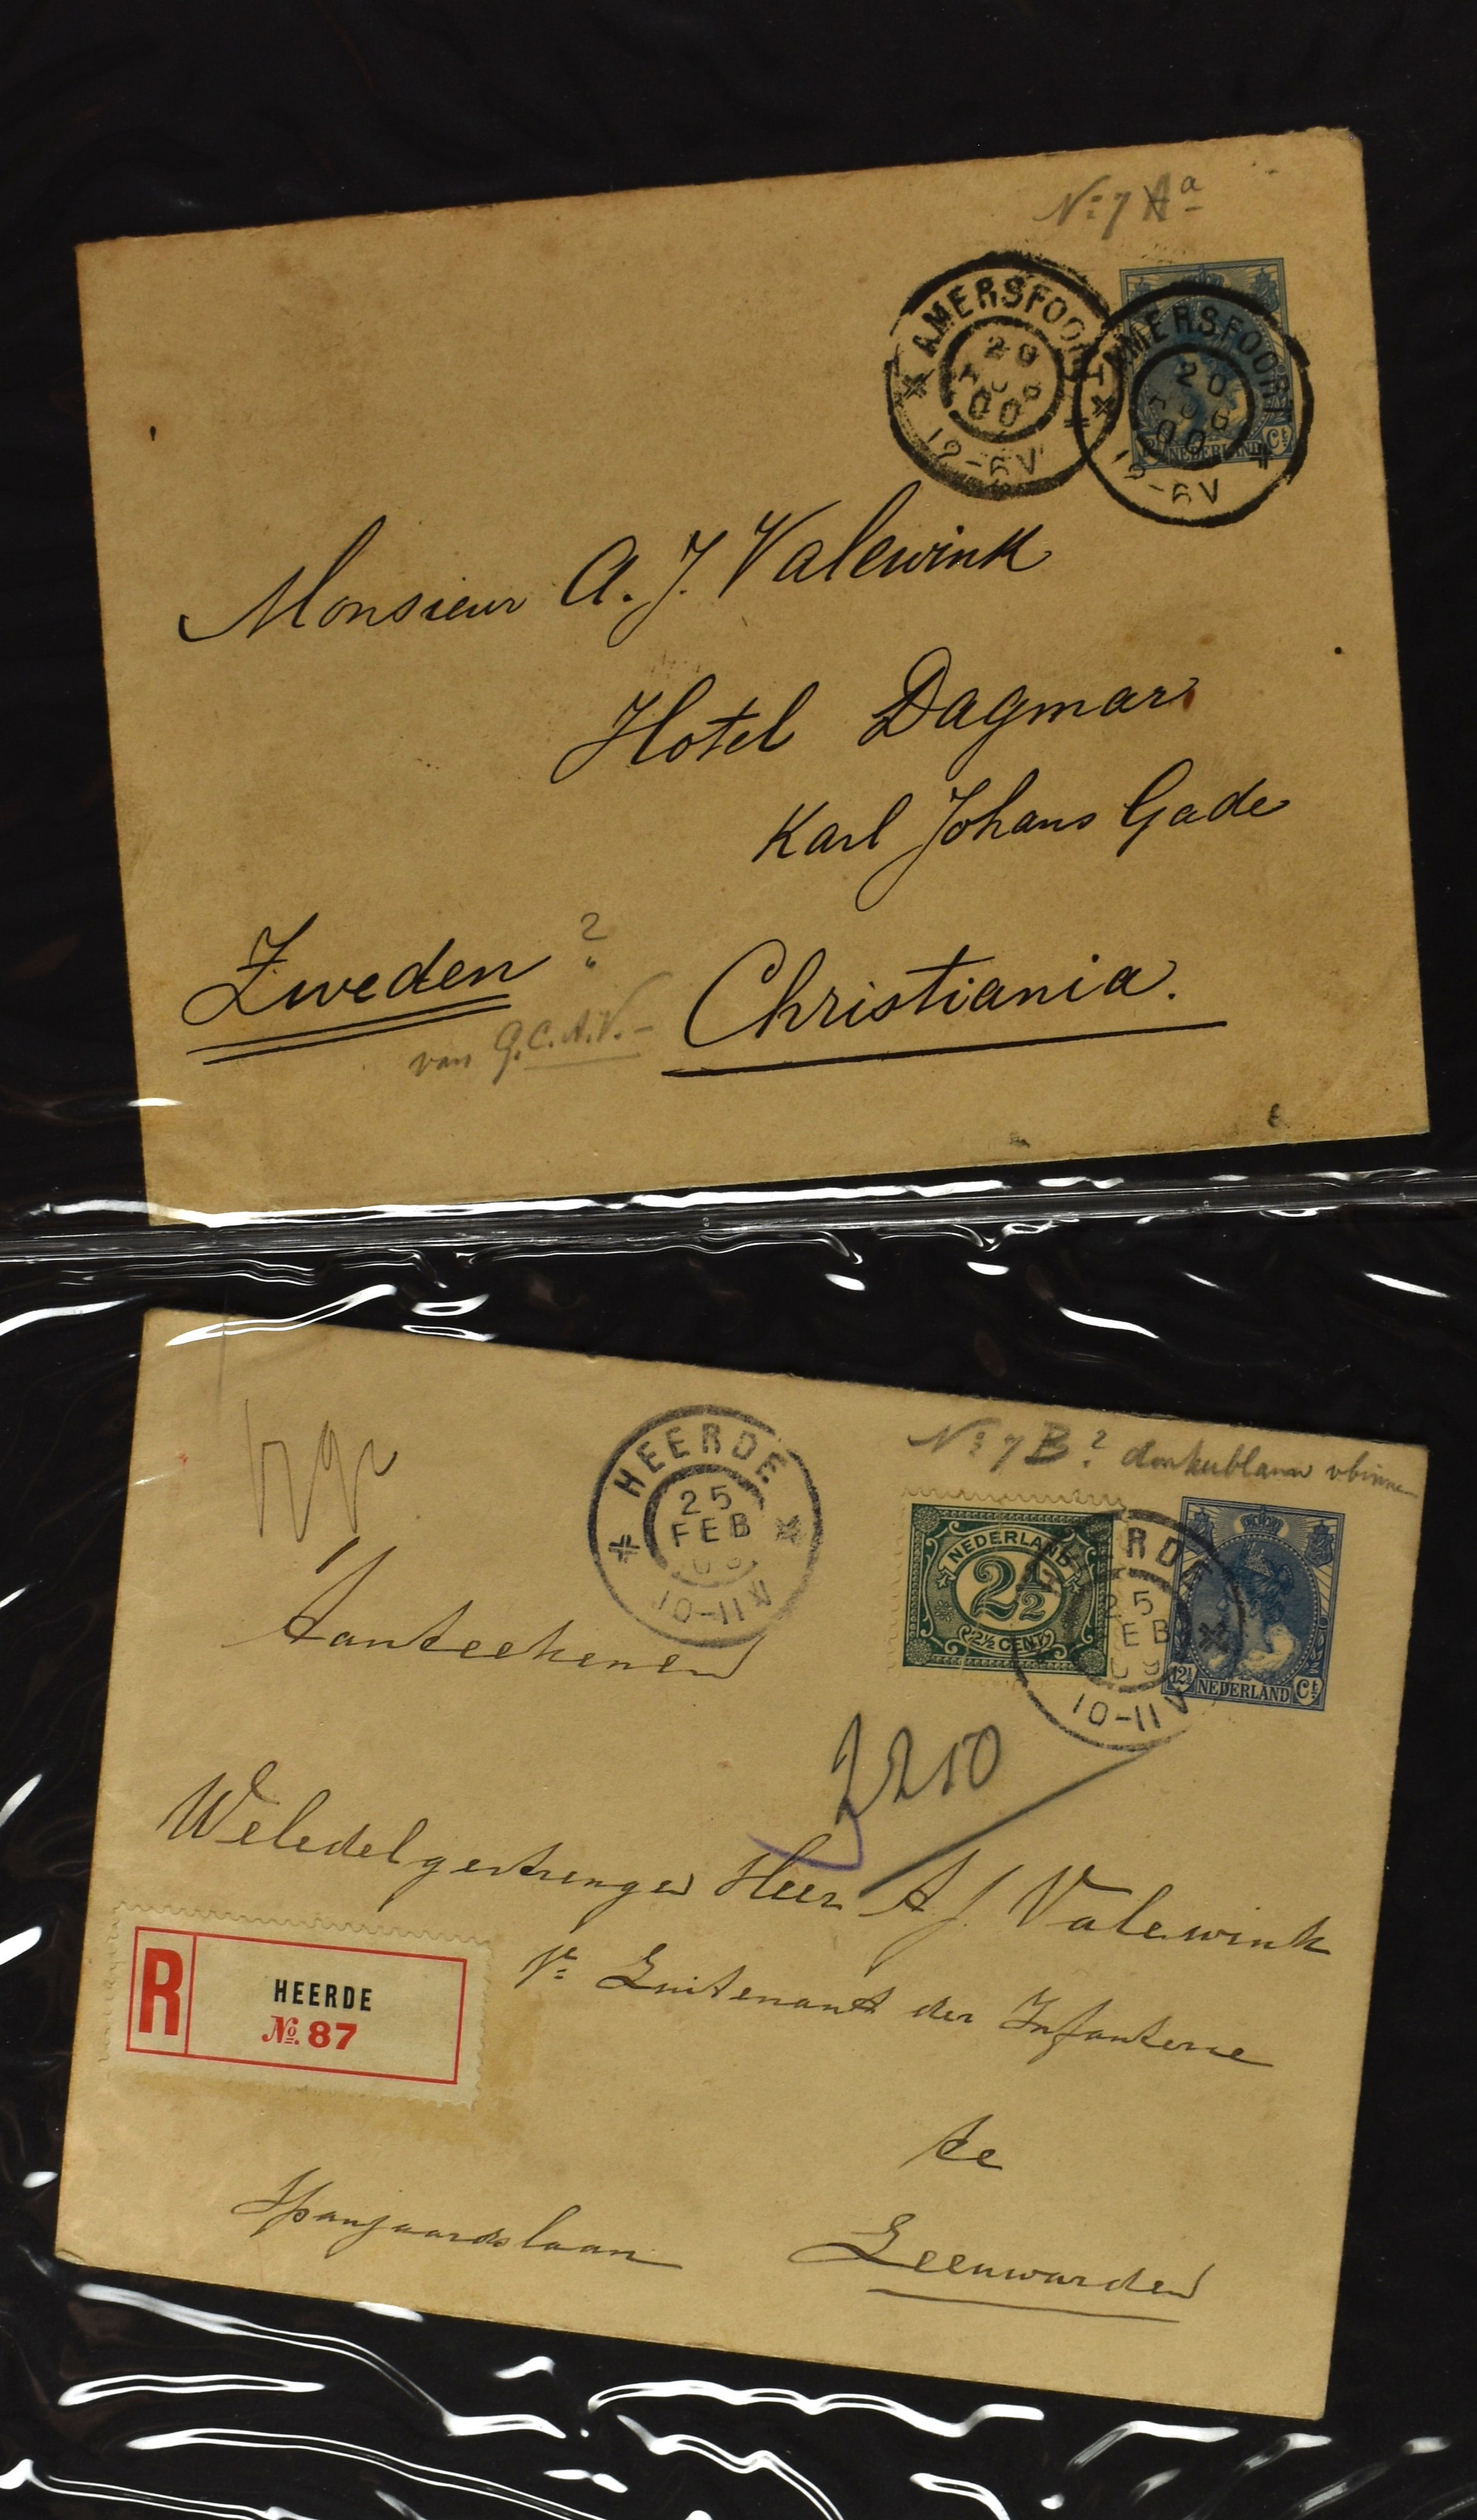 No 7 Aa
AMERSFOORT
20
AUG
00
12-6V
AMERSFOORT
20
AUG
00
12-6V
12½ NEDERLAND Ct
Monsieur A. J. Valewink
Hotel Dagmar
Karl Johans Gade
Zweden ?
van G.C.A.V.-
Christiania.
No 7 B? donkerblauw vbinnen
HEERDE
25
FEB
10-11V
NEDERLAND
2½
2½ CENT
HEERDE
25
FEB
09
10-11V
12½ NEDERLAND Ct
Aanteekenen
2250
Weledelgestrenger Heer A J Valewink
1e Luitenant der Infanterie
R
HEERDE
No. 87
te
Spanjaardslaan
Leeuwarden